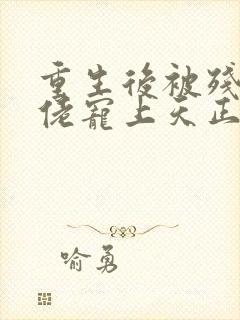 重生後被殘
佬寵上天正
喻勇